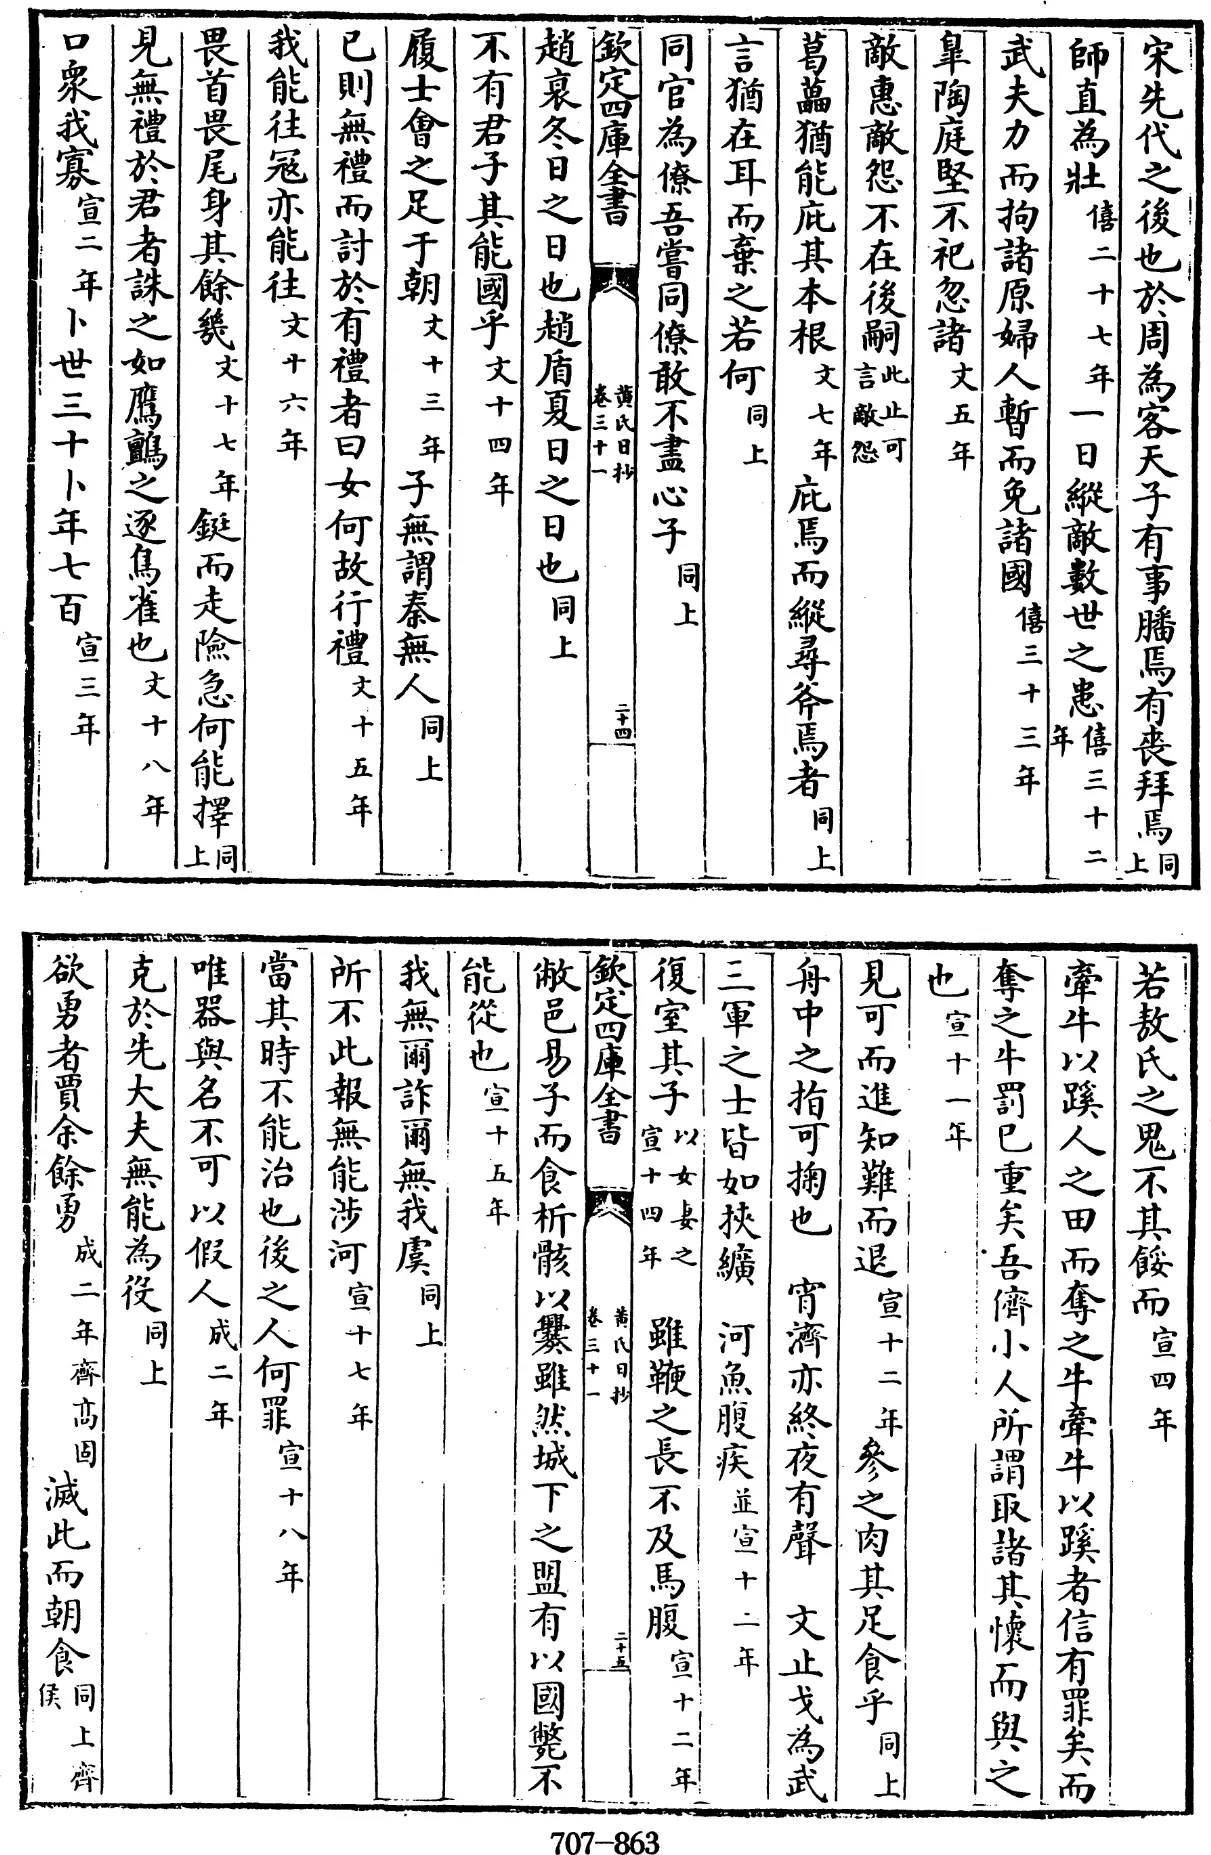 宋先代之後也於周為客天子有事膰焉有喪拜焉同上
師直為壯僖二十七年一日縱敵數世之患僖三十二年
武夫力而拘諸原婦人暫而免諸國僖三十三年
臯陶庭堅不祀忽諸文五年
敵惠敵怨不在後嗣此止可言敵怨
葛藟猶能庇其本根文七年庇焉而縱尋斧焉者同上
言猶在耳而棄之若何同上
同官為僚吾嘗同僚敢不盡心子同上
欽定四庫全書
黄氏日抄
卷三十一
二十四
趙衰冬日之日也趙盾夏日之日也同上
不有君子其能國乎文十四年
履士會之足于朝文十三年子無謂秦無人同上
已則無禮而討於有禮者曰女何故行禮文十五年
我能往冦亦能往文十六年
畏首畏尾身其餘幾文十七年鋌而走險急何能擇同上
見無禮於君者誅之如鷹鸇之逐鳥雀也文十八年
口衆我寡宣二年卜世三十卜年七百宣三年
若敖氏之鬼不其餒而宣四年
牽牛以蹊人之田而奪之牛牽牛以蹊者信有罪矣而
奪之牛罰已重矣吾儕小人所謂取諸其懷而與之
也宣十一年
見可而進知難而退宣十二年參之肉其足食乎同上
舟中之指可掬也　宵濟亦終夜有聲　文止戈為武
三軍之士皆如挾纊　河魚腹疾並宣十二年
復室其子以女妻之宣十四年　雖鞭之長不及馬腹宣十二年
欽定四庫全書
黄氏日抄
卷三十一
二十五
敝邑易子而食析骸以爨雖然城下之盟有以國斃不
能從也宣十五年
我無爾詐爾無我虞同上
所不此報無能涉河宣十七年
當其時不能治也後之人何罪宣十八年
唯器與名不可以假人成二年
克於先大夫無能為役同上
欲勇者賈余餘勇成二年齊高固滅此而朝食同上齊侯
707-863